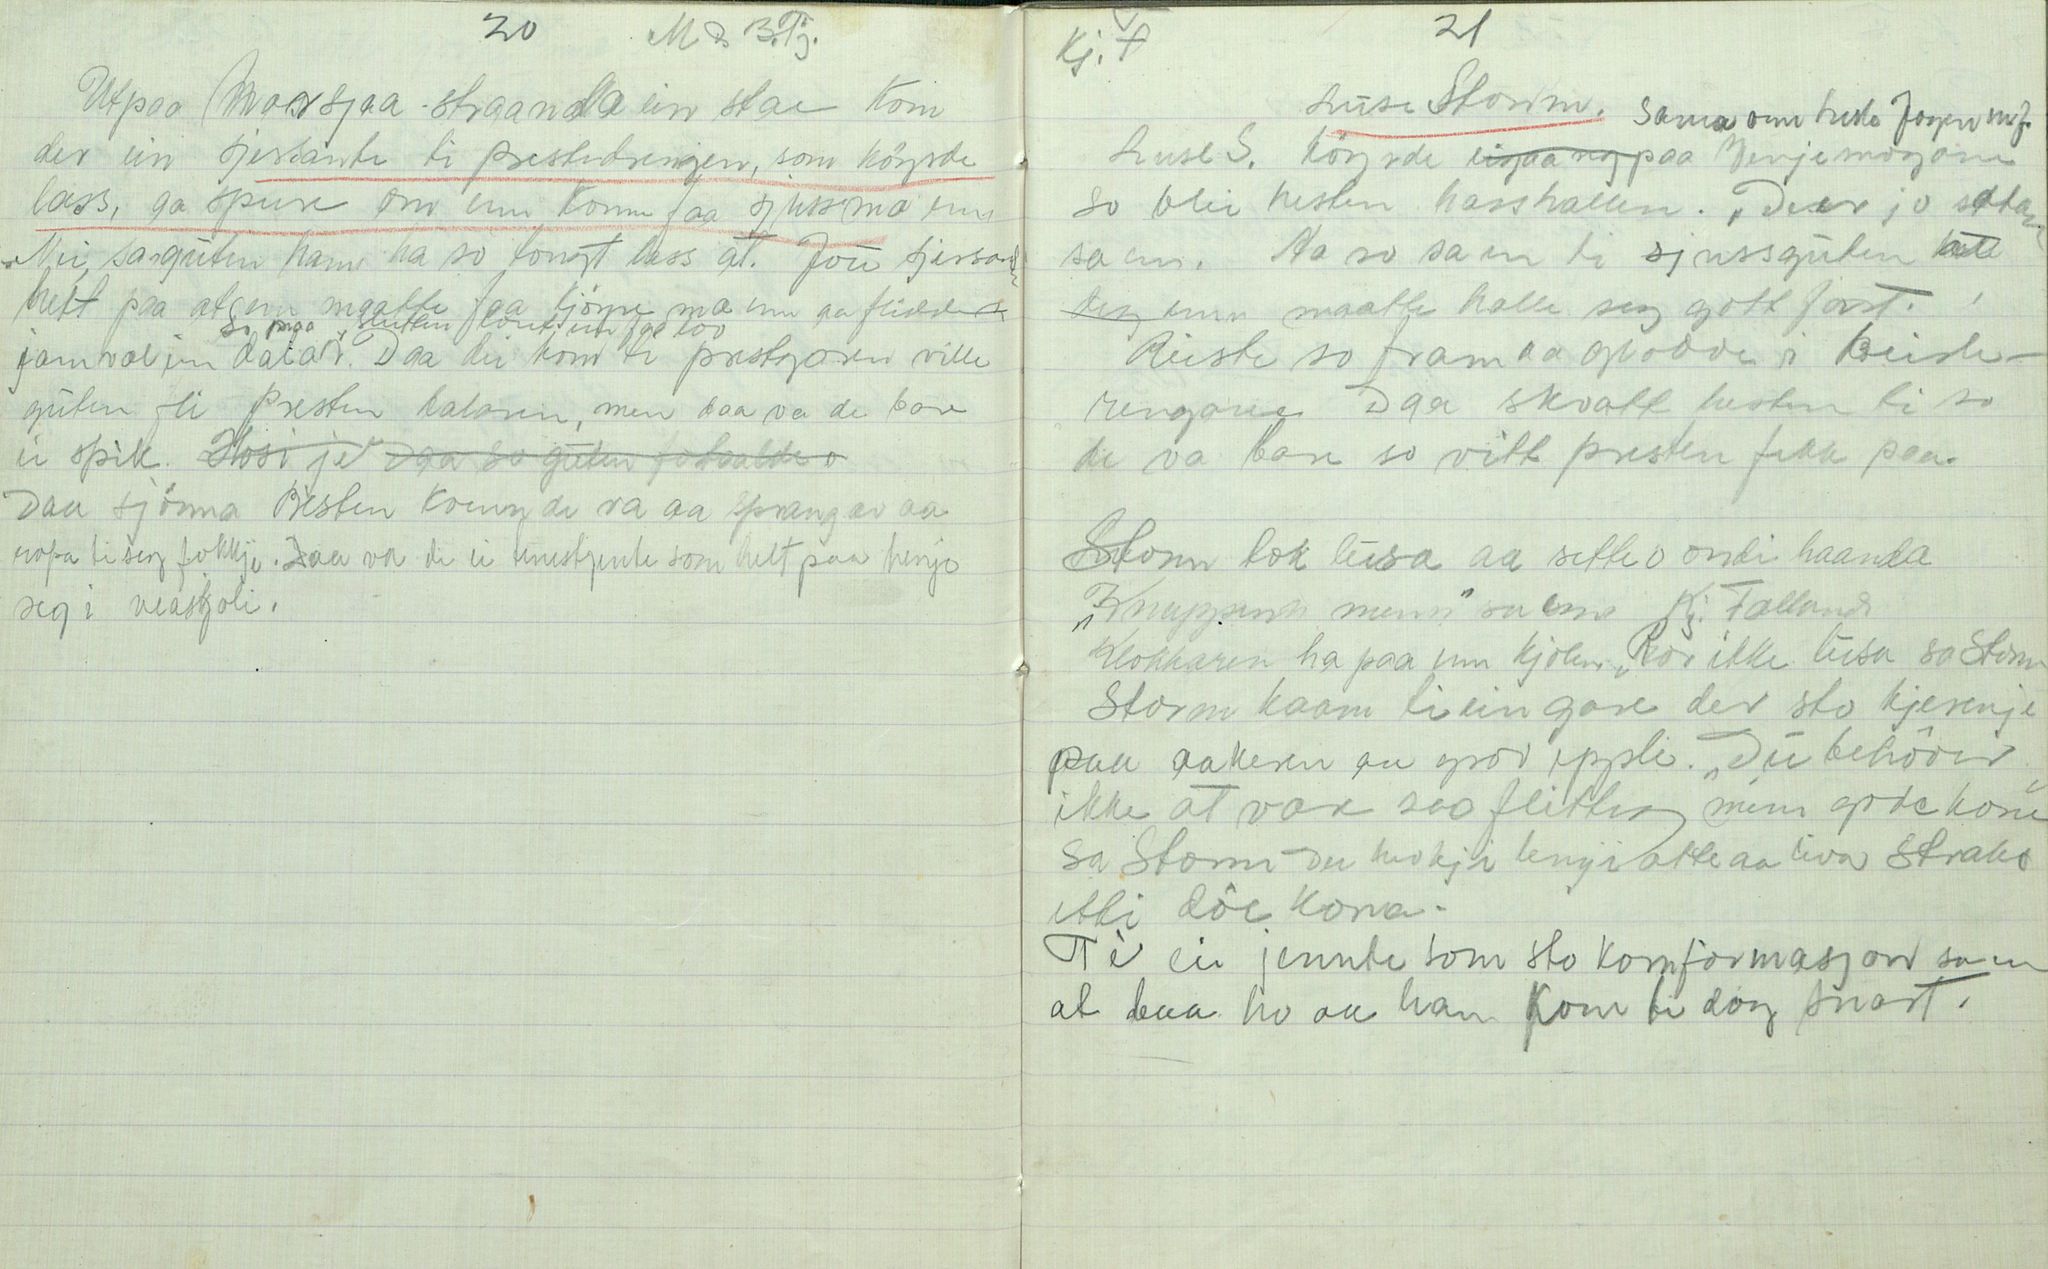 20 M B.Tj.
Utpaa Morsjaa-straanda ein stae kom
der ein sjersante ti prestedrengen, som köyrde
lass, aa spure om enn konne faa sjuss mæ enn
Nei, sa guten hann ha so tongt lass at. Jou sjersanten
helt paa at enn maatte faa kjöyre mæ enn aa
So maa guten
jamvæl ein dalar. Daa dei kom ti prestgaren ville
guten fli Presten dalaren, men daa va de bare
ei spik. Hosi je Daa so guten
Daa sjönna Presten koenn de va aa sprang av aa
ropa ti seg folkje. Daa va de ei tenestjente som helt paa henje
seg i veaskjoli.
Kj. F 21
Luse Storm. Sama om
Luse S. köyrde eigaang paa Venjemogane
so blei hesten hasshallen. "De er jo satan
sa en. Aa so sa en ti sjussguten
deg enn maatte halle seg gott fast.
Reiste so fram aa glodde i Beiste-
rengane. Daa skvatt hesten ti so
de va bare so vitt presten fekk paa.
Storm tok lusa aa sette o ondi haanda
"Knappen min" sa enn Kj. Tælland
Klokkaren ha paa enn kjolen, "Rör ikke lusa sa Storm
Storm kaam ti ein gare der sto kjerenje
paa aakeren aa grov epple. "Du behöver
ikke at være saa flittig min gode kone"
sa Storm du he kje lenji atte aa leva Straks
etti döe kona.
Te ei jennte som sto konfirmasjon sa en
at baa ho aa han kom ti döy snart.